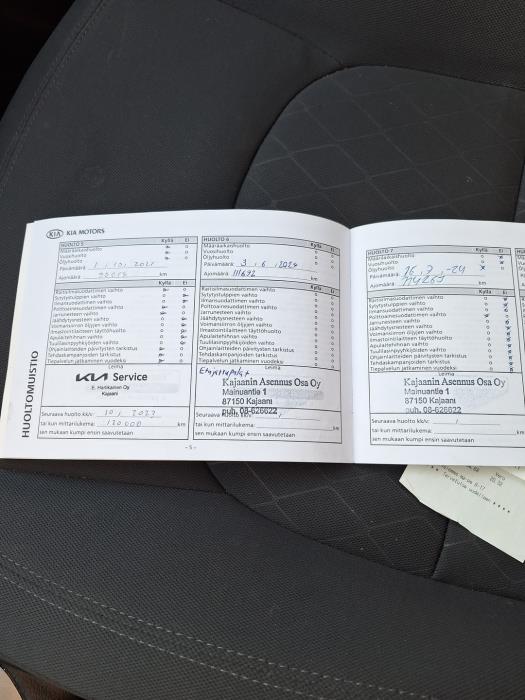 KIA MOTORS
HUOLTO 5
Kyllä Ei
Määräaikaishuolto
Vuosihuolto
Öljyhuolto
Päivämäärä:
Ajomäärä km
Kyllä Ei
Raitisilmasuodattimen vaihto
Sytytystulppien vaihto
Ilmansuodattimen vaihto
Polttoainesuodattimen vaihto
Jarrunesteen vaihto
Jäähdytysnesteen vaihto
Voimansiirron öljyjen vaihto
Ilmastointilaitteen täyttöhuolto
Apulaitehihnan vaihto
Tuulilasinpyyhkijöiden vaihto
Ohjainlaitteiden päivitysten tarkistus
Tehdaskampanjoiden tarkistus
Tiepalvelun jatkaminen vuodeksi
Leima
KIA Service
E. Hartikainen Oy
Kajaani
Seuraava huolto kk/v: 10 / 2022
tai kun mittarilukema: 120 000 km
sen mukaan kumpi ensin saavutetaan
HUOLTOMUISTIO
- 5 -
HUOLTO 6
Kyllä Ei
Määräaikaishuolto
Vuosihuolto
Öljyhuolto
Päivämäärä: 3 , 6 , 2024
Ajomäärä: 111692 km
Kyllä Ei
Raitisilmasuodattimen vaihto
Sytytystulppien vaihto
Ilmansuodattimen vaihto
Polttoainesuodattimen vaihto
Jarrunesteen vaihto
Jäähdytysnesteen vaihto
Voimansiirron öljyjen vaihto
Ilmastointilaitteen täyttöhuolto
Apulaitehihnan vaihto
Tuulilasinpyyhkijöiden vaihto
Ohjainlaitteiden päivitysten tarkistus
Tehdaskampanjoiden tarkistus
Tiepalvelun jatkaminen vuodeksi
Leima
Kajaanin Asennus Osa Oy
Mainuantie 1
87150 Kajaani
puh. 08-626622
Seuraava huolto kk/v: /
tai kun mittarilukema: km
sen mukaan kumpi ensin saavutetaan
HUOLTO 7
Kyllä Ei
Määräaikaishuolto
Vuosihuolto
Öljyhuolto
Päivämäärä: -24
Ajomäärä: km
Kyllä Ei
Raitisilmasuodattimen vaihto
Sytytystulppien vaihto
Ilmansuodattimen vaihto
Polttoainesuodattimen vaihto
Jarrunesteen vaihto
Jäähdytysnesteen vaihto
Voimansiirron öljyjen vaihto
Ilmastointilaitteen täyttöhuolto
Apulaitehihnan vaihto
Tuulilasinpyyhkijöiden vaihto
Ohjainlaitteiden päivitysten tarkistus
Tehdaskampanjoiden tarkistus
Tiepalvelun jatkaminen vuodeksi
Leima
Kajaanin Asennus Osa Oy
Mainuantie 1
87150 Kajaani
puh. 08-626622
Seuraava huolto kk/v: /
tai kun mittarilukema: km
sen mukaan kumpi ensin saavutetaan